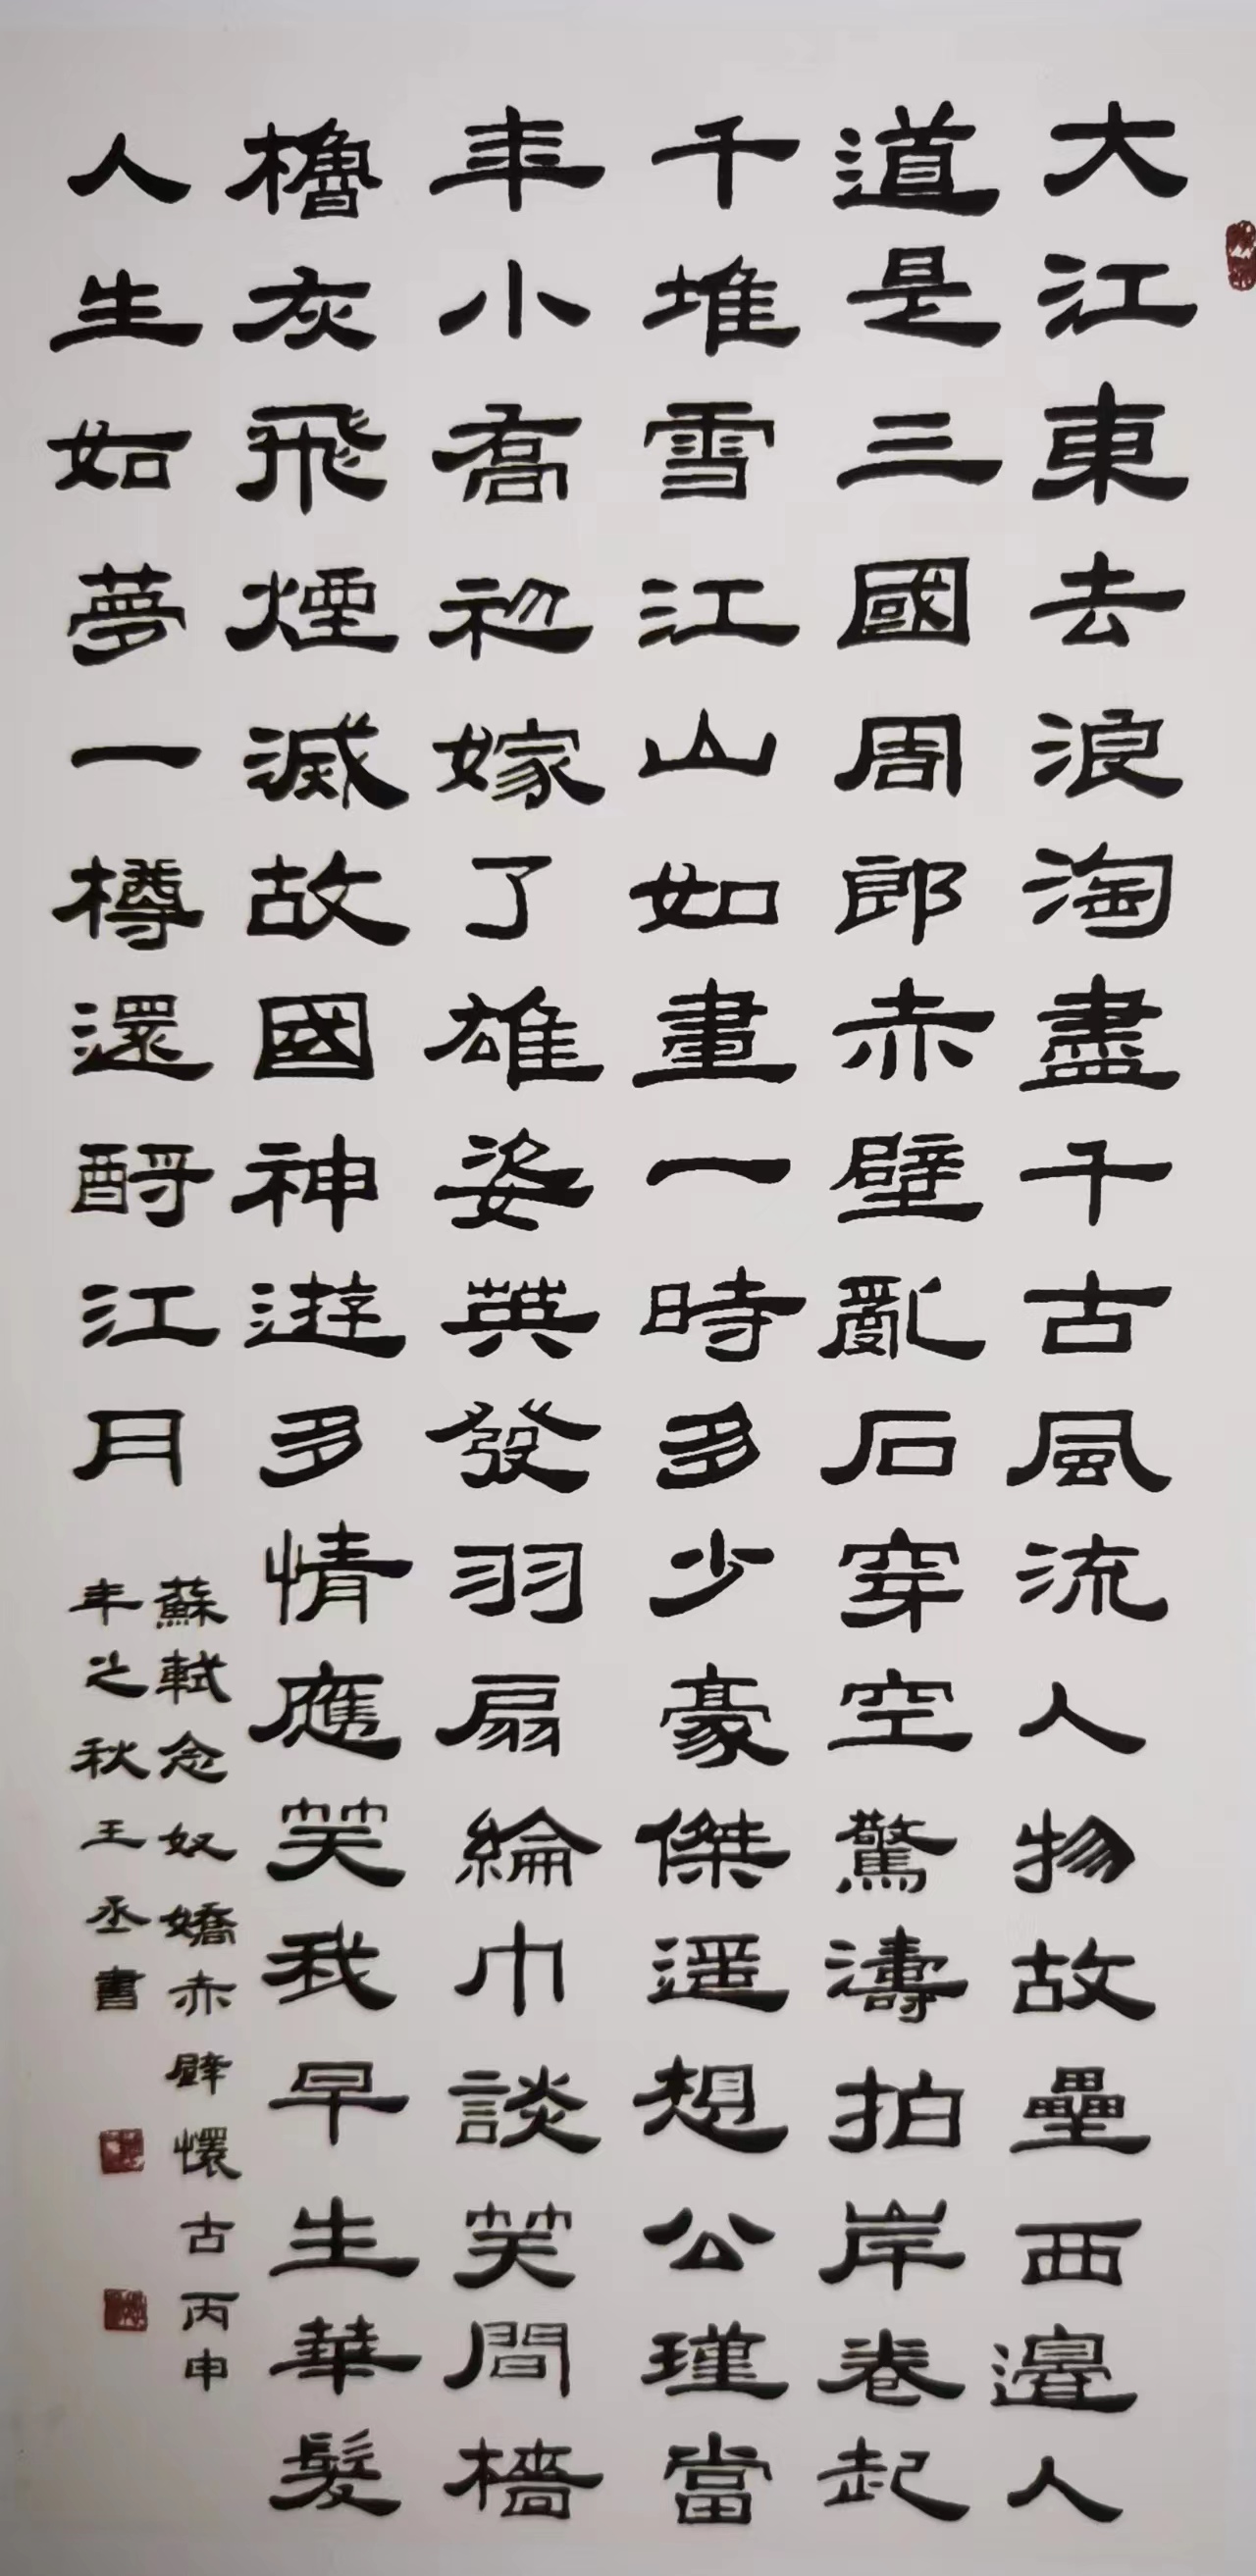 大江東去浪淘盡千古風流人物故壘西邊人
道是三國周郎赤壁亂石穿空驚濤拍岸卷起
千堆雪江山如畫一時多少豪傑遥想公瑾當
年小喬初嫁了雄姿英發羽扇綸巾談笑間檣
櫓灰飛煙滅故國神遊多情應笑我早生華髮
人生如夢一樽還酹江月
蘇軾念奴嬌赤壁懷古丙申
年之秋王丞書